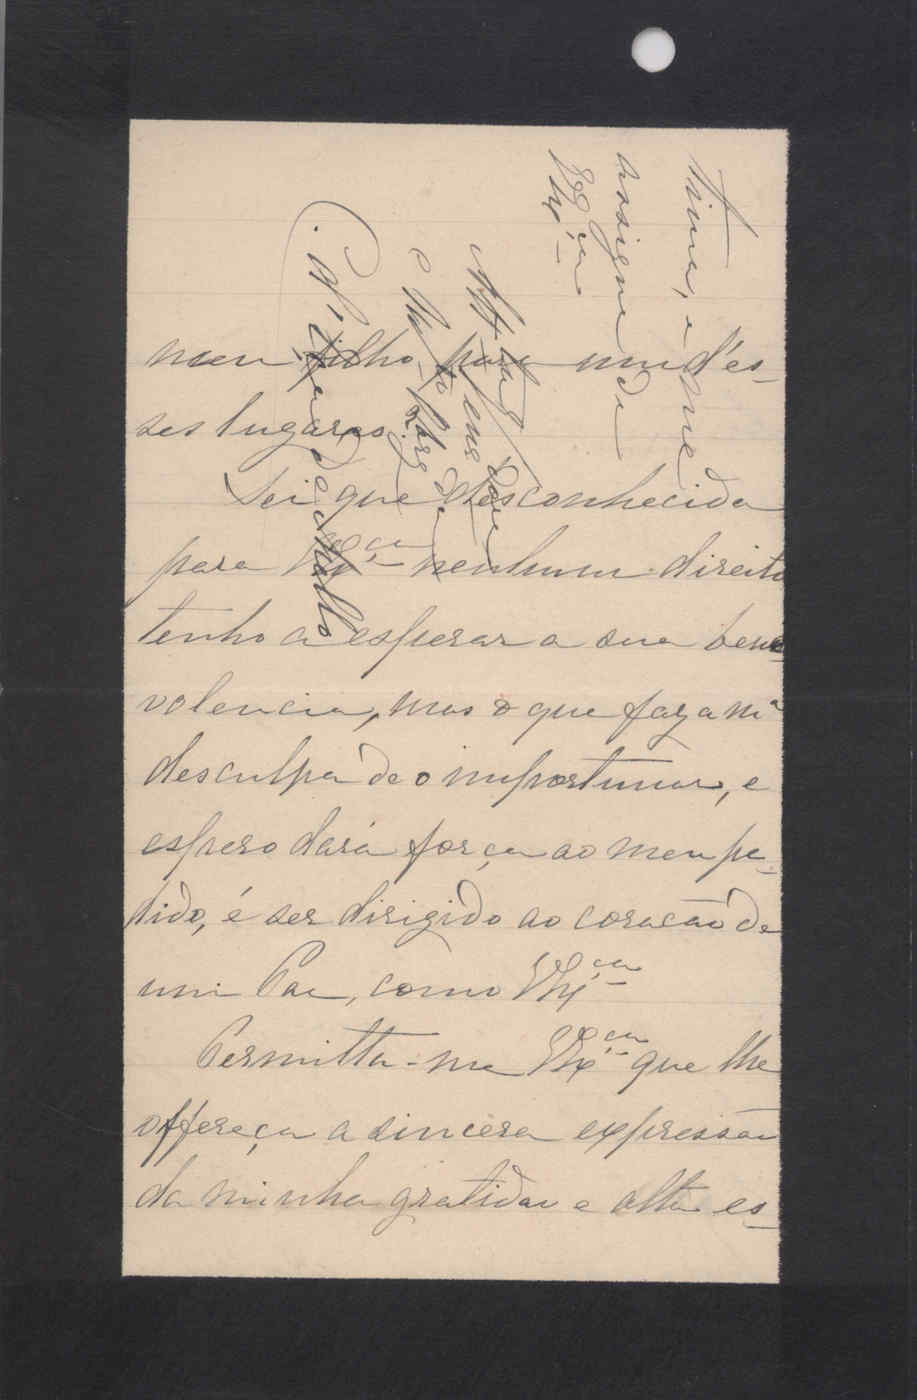 meu filho para um d'es-
ses lugares.
Sei que desconhecida
para VEx.cia nenhum direito
tenho a esperar a sua bene-
volencia, mas o que faz a m.a
desculpa de o importunar, e
espero dará força ao meu pe-
dido, é ser dirigido ao coração de
um Pae, como VEx.cia
Permitta-me VEx.cia que lhe
offereça a sincera expressão
da minha gratidão e alta es-
tima, e me
assigne de
VEx.cia
Att.a
e
C.